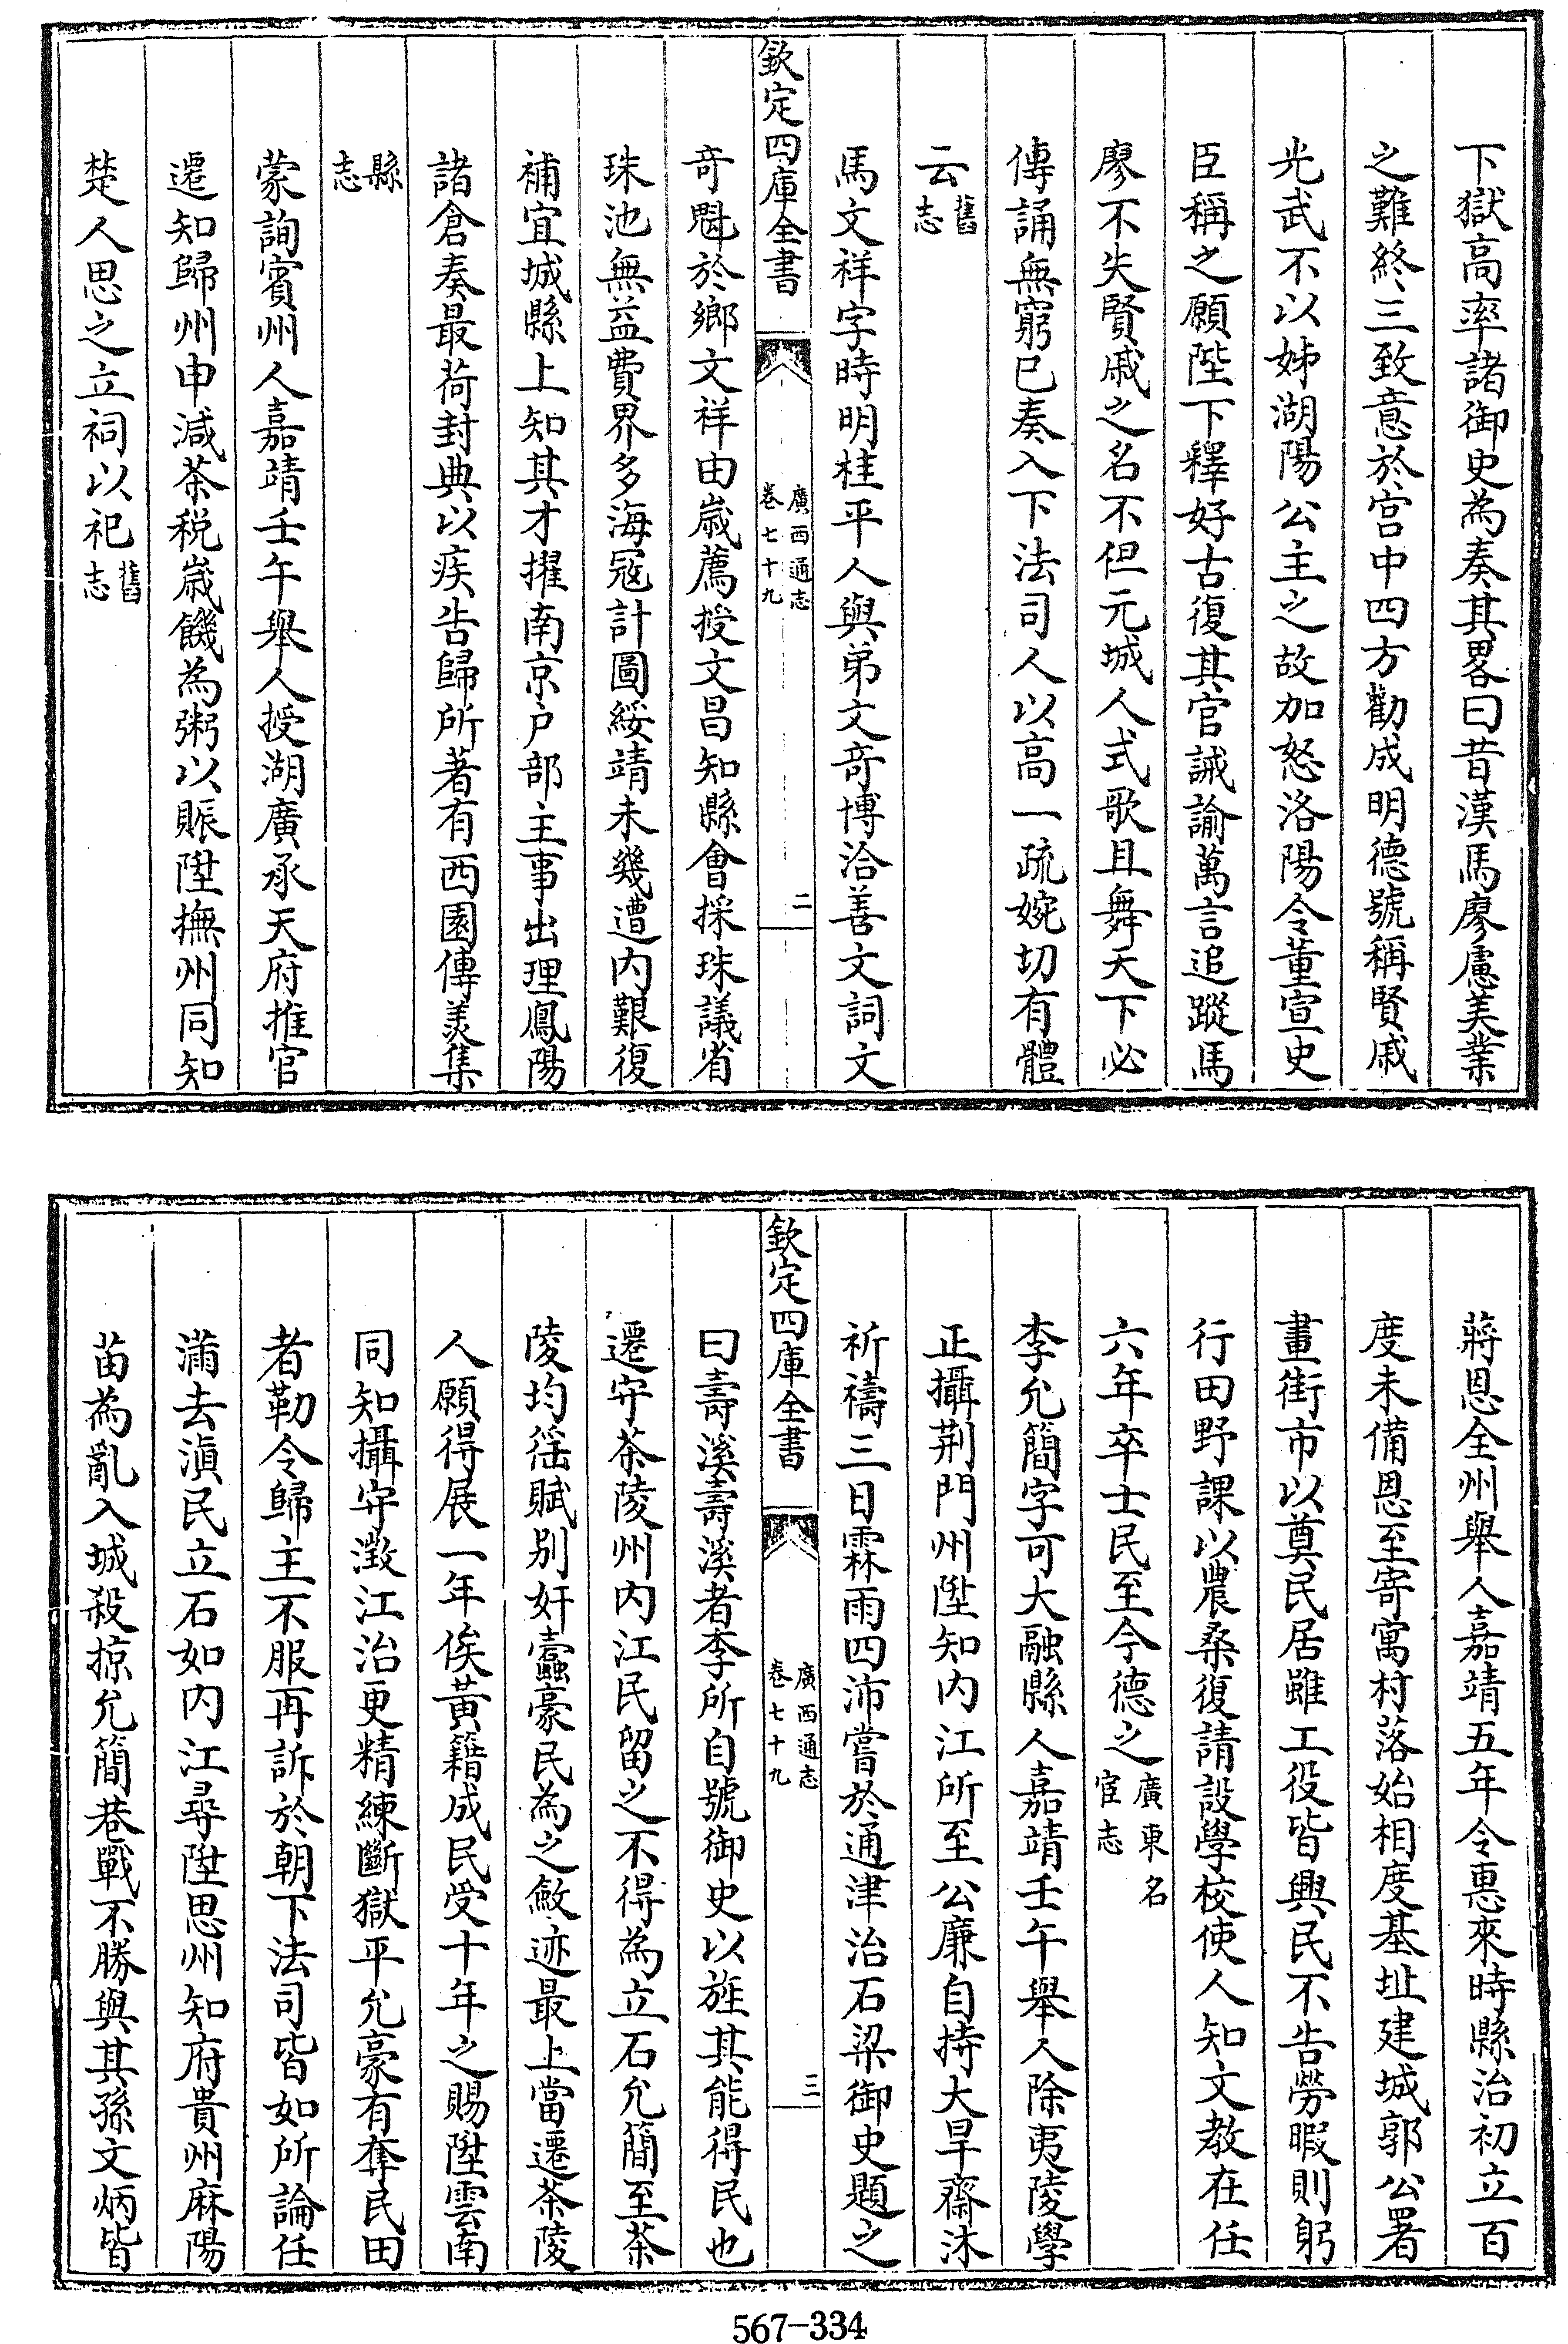 下獄高率諸御史為奏其畧曰昔漢馬廖慮美業
之難終三致意於宫中四方勸成明德號稱賢戚
光武不以姊湖陽公主之故加怒洛陽令董宣史
臣稱之願陛下釋好古復其官誡諭萬言追蹤馬
廖不失賢戚之名不但元城人式歌且舞天下必
傳誦無窮已奏入下法司人以高一疏婉切有體
云舊志
馬文祥字時明桂平人與弟文竒博洽善文詞文
欽定四庫全書
廣西通志
卷七十九
二
竒魁於鄉文祥由嵗薦授文昌知縣會採珠議省
珠池無益費界多海冦計圖綏靖未幾遭内艱復
補宜城縣上知其才擢南京户部主事出理鳳陽
諸倉奏最荷封典以疾告歸所著有西園傳羙集
縣志
蒙詢賓州人嘉靖壬午舉人授湖廣承天府推官
遷知歸州申減茶税嵗饑為粥以賑陞撫州同知
楚人思之立祠以祀舊志
蔣恩全州舉人嘉靖五年令惠來時縣治初立百
度未備恩至寄寓村落始相度基址建城郭公署
畫街市以奠民居雖工役皆興民不告勞暇則躬
行田野課以農桑復請設學校使人知文教在任
六年卒士民至今德之廣東名宦志
李允簡字可大融縣人嘉靖壬午舉人除夷陵學
正攝荆門州陞知内江所至公廉自持大旱齋沐
祈禱三日霖雨四沛嘗於通津治石梁御史題之
欽定四庫全書
廣西通志
卷七十九
三
曰壽溪壽溪者李所自號御史以旌其能得民也
遷守茶陵州内江民留之不得為立石允簡至茶
陵均徭賦別奸蠧豪民為之斂迹最上當遷茶陵
人願得展一年俟黄籍成民受十年之賜陞雲南
同知攝守澂江治更精練斷獄平允豪有奪民田
者勒令歸主不服再訴於朝下法司皆如所論任
滿去滇民立石如内江尋陞思州知府貴州麻陽
苗為亂入城殺掠允簡巷戰不勝與其孫文炳皆
567-334